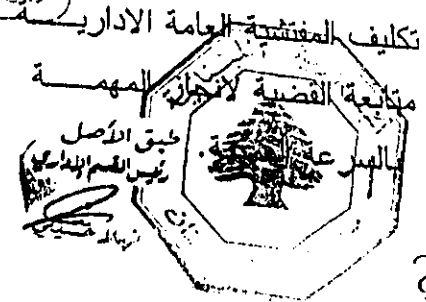 تكليف المفتشية العامة الادارية
متابعة القضية لانجاز المهمة
بالسرعة
طبق الأصل
رئيس القسم الإداري